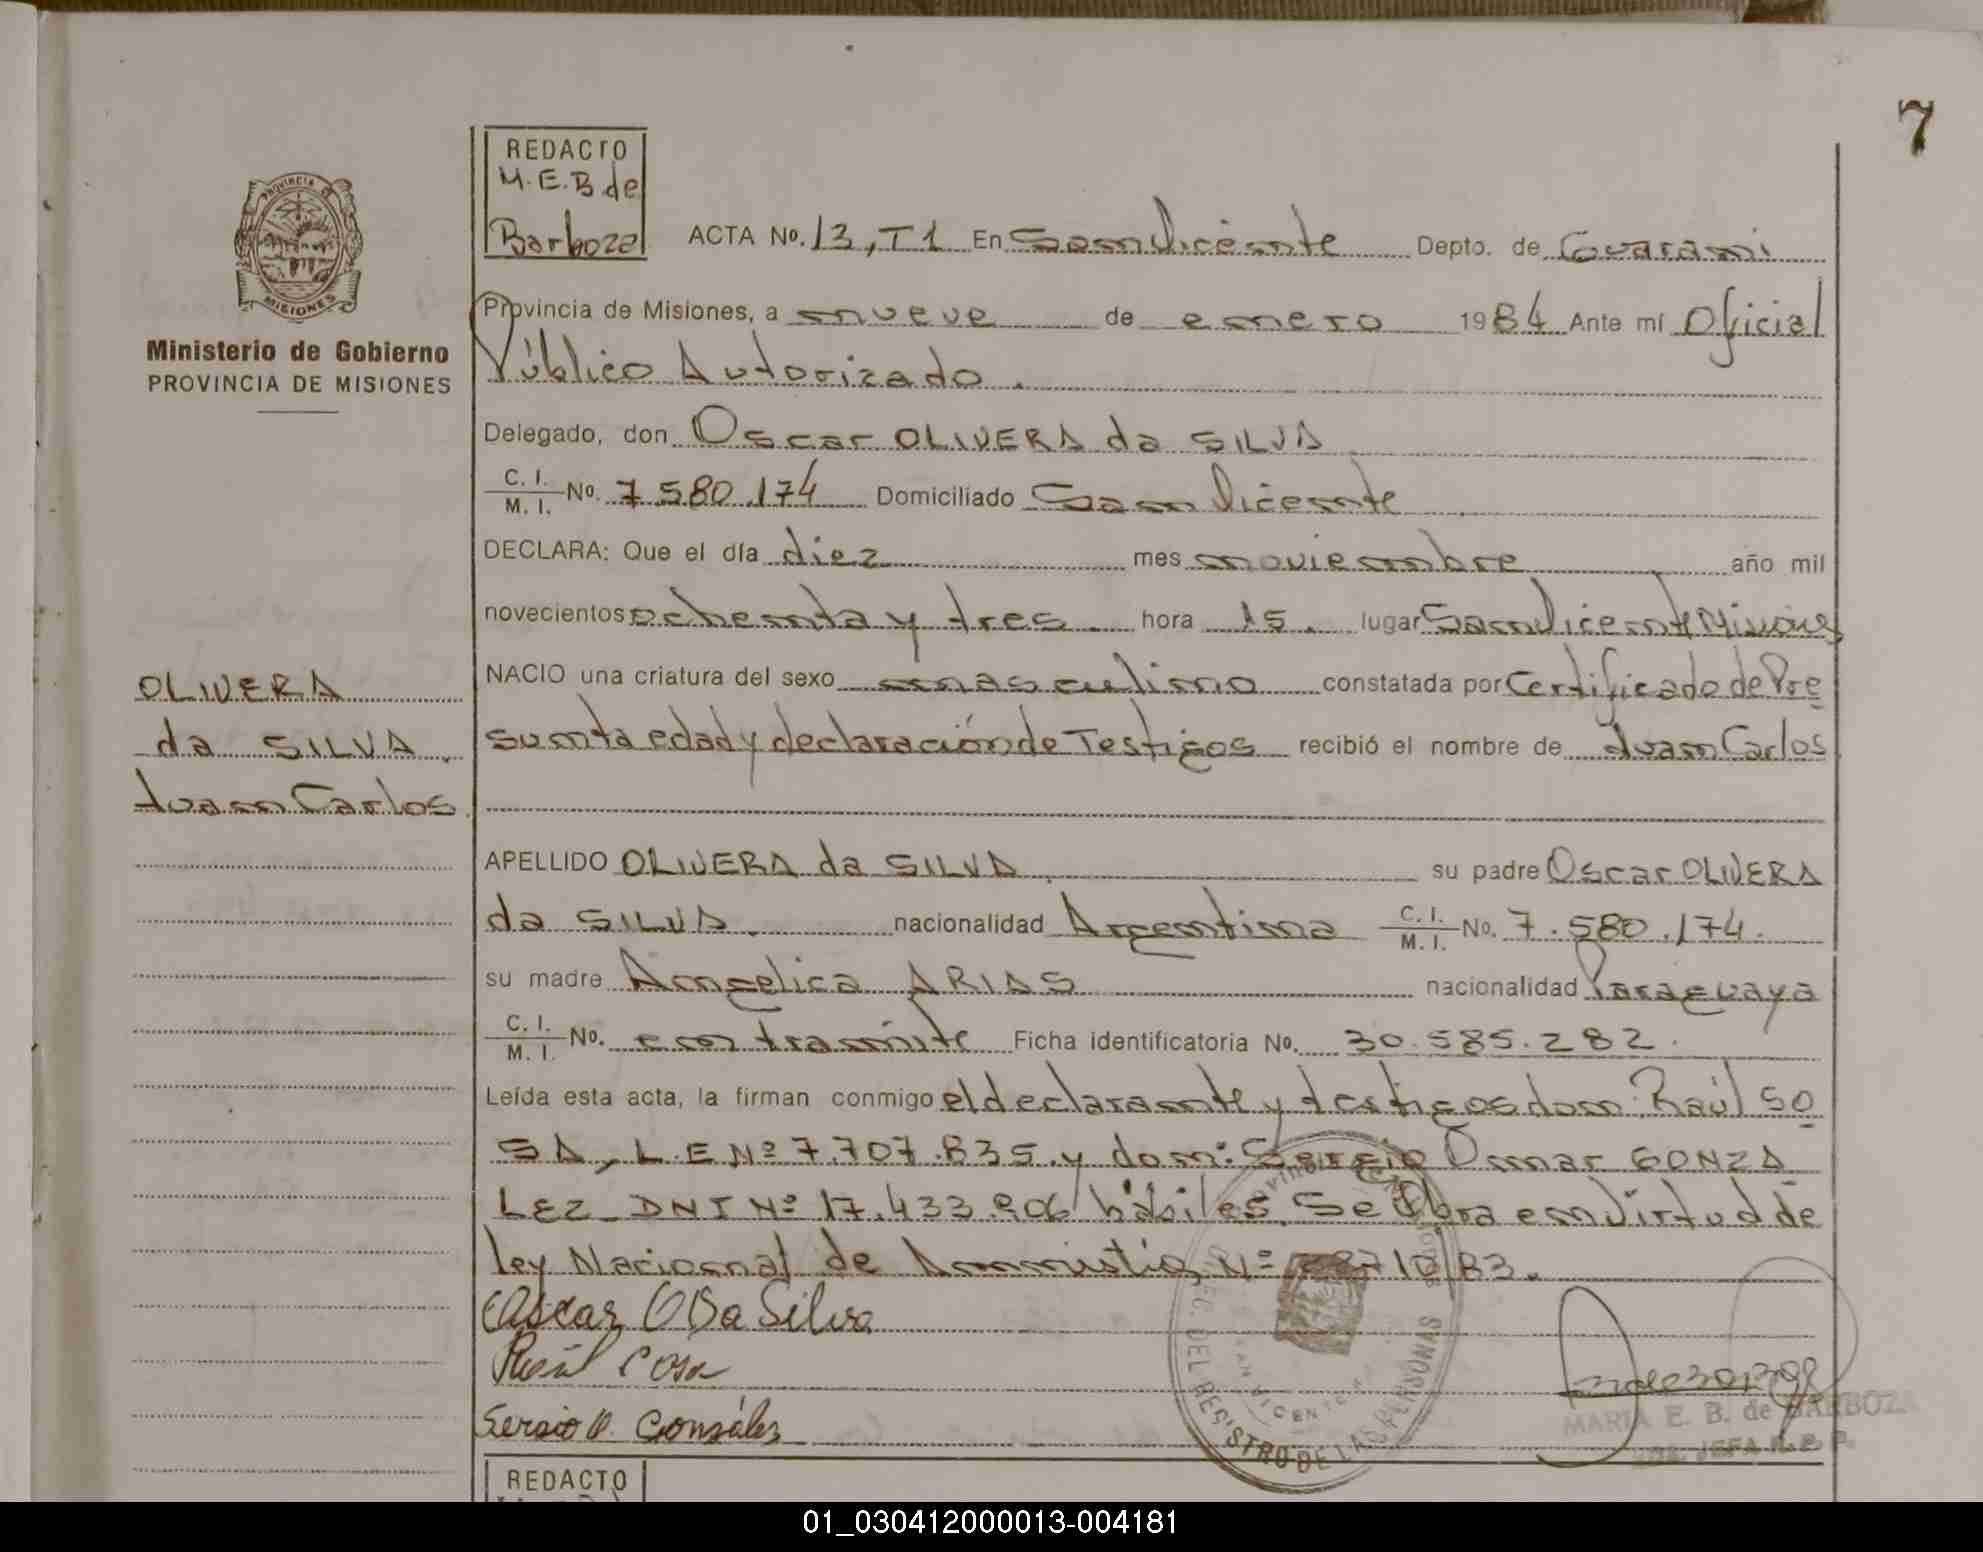 7
REDACTO
M.E.B de
Barboza
ACTA Nº. 13, T1 En San Vicente Depto. de Guarani
PROVINCIA DE
MISIONES
Ministerio de Gobierno
PROVINCIA DE MISIONES
Provincia de Misiones, a nueve de enero 1984 Ante mí Oficial
Público Autorizado.
Delegado, don Oscar OLIVERA da SILVA
C. I. / M. I. Nº. 7.580.174 Domiciliado San Vicente
DECLARA: Que el día diez mes noviembre año mil
novecientos ochenta y tres. hora 15. lugar San Vicente Misiones
NACIO una criatura del sexo masculino constatada por Certificado de Pre
sunta edad y declaración de Testigos recibió el nombre de Juan Carlos
OLIVERA
da SILVA,
Juan Carlos.
APELLIDO OLIVERA da SILVA. su padre Oscar OLIVERA
da SILVA. nacionalidad Argentina C. I. / M. I. Nº. 7.580.174.
su madre Angelica ARIAS nacionalidad Paraguaya
C. I. / M. I. Nº. en tramite Ficha identificatoria No. 30.585.282.
Leída esta acta, la firman conmigo el declarante y testigos don: Raúl SO
SA, L.E Nº 7.707.835. y don: Sergio Omar GONZA
LEZ DNI Nº 17.433.906 hábiles. Se Obra en virtud de
ley Nacional de Amnistia Nº
83.
Oscar O Da Silva
Raúl Sosa
Sergio O. González
DEL REGISTRO DE LAS PERSONAS
SAN VICENTE
MARIA E. B. de BARBOZA
JEFA R. P. P.
REDACTO
01_030412000013-004181